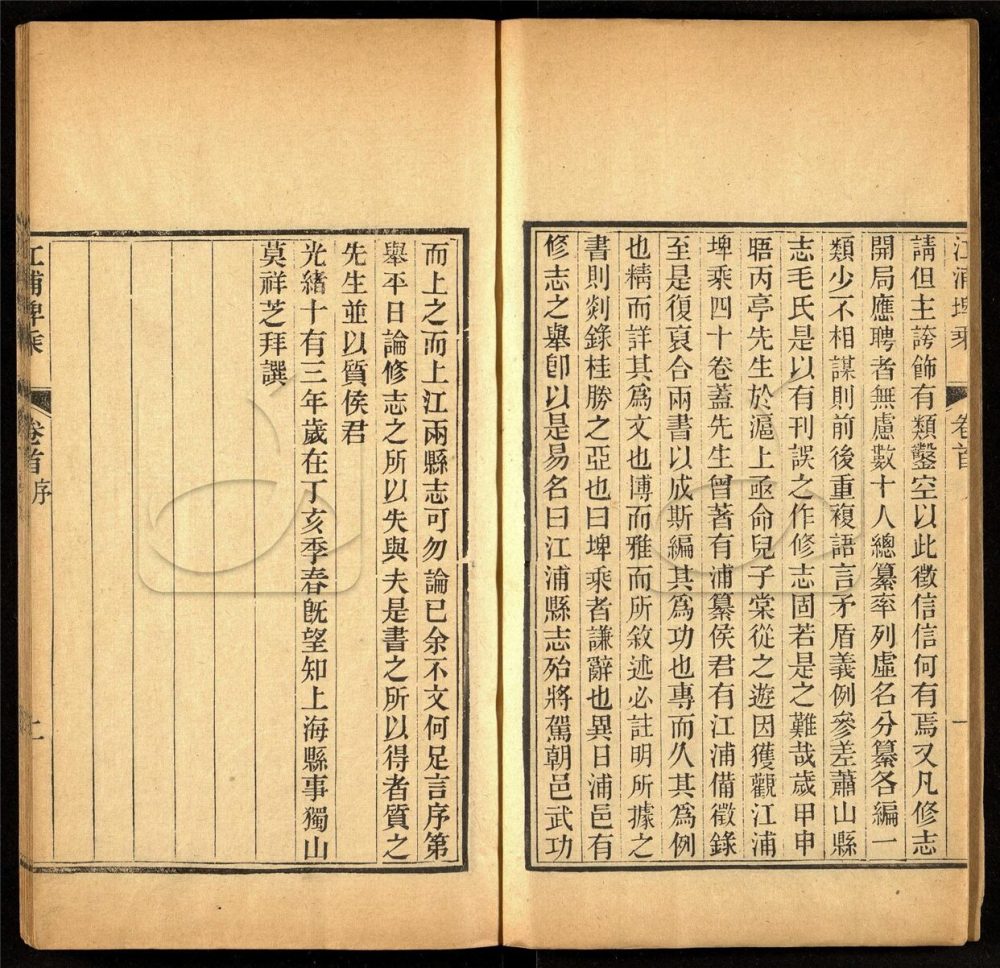 江浦埤乘 卷首 一
請但主誇飾有類鑿空以此徵信信何有焉又凡修志
開局應聘者無慮數十人總纂率列虛名分纂各編一
類少不相謀則前後重複語言矛盾義例參差蕭山縣
志毛氏是以有刊誤之作修志固若是之難哉歲甲申
晤丙亭先生於滬上亟命兒子棠從之遊因獲觀江浦
埤乘四十卷蓋先生曾著有浦纂侯君有江浦備徵錄
至是復裒合兩書以成斯編其為功也專而久其為例
也精而詳其為文也博而雅而所敘述必註明所據之
書則剡錄桂勝之亞也曰埤乘者謙辭也異日浦邑有
修志之舉卽以是易名曰江浦縣志殆將駕朝邑武功
而上之而上江兩縣志可勿論已余不文何足言序第
舉平日論修志之所以失與夫是書之所以得者質之
先生並以質侯君
光緒十有三年歲在丁亥季春旣望知上海縣事獨山
莫祥芝拜譔
江浦埤乘 卷首 序 二